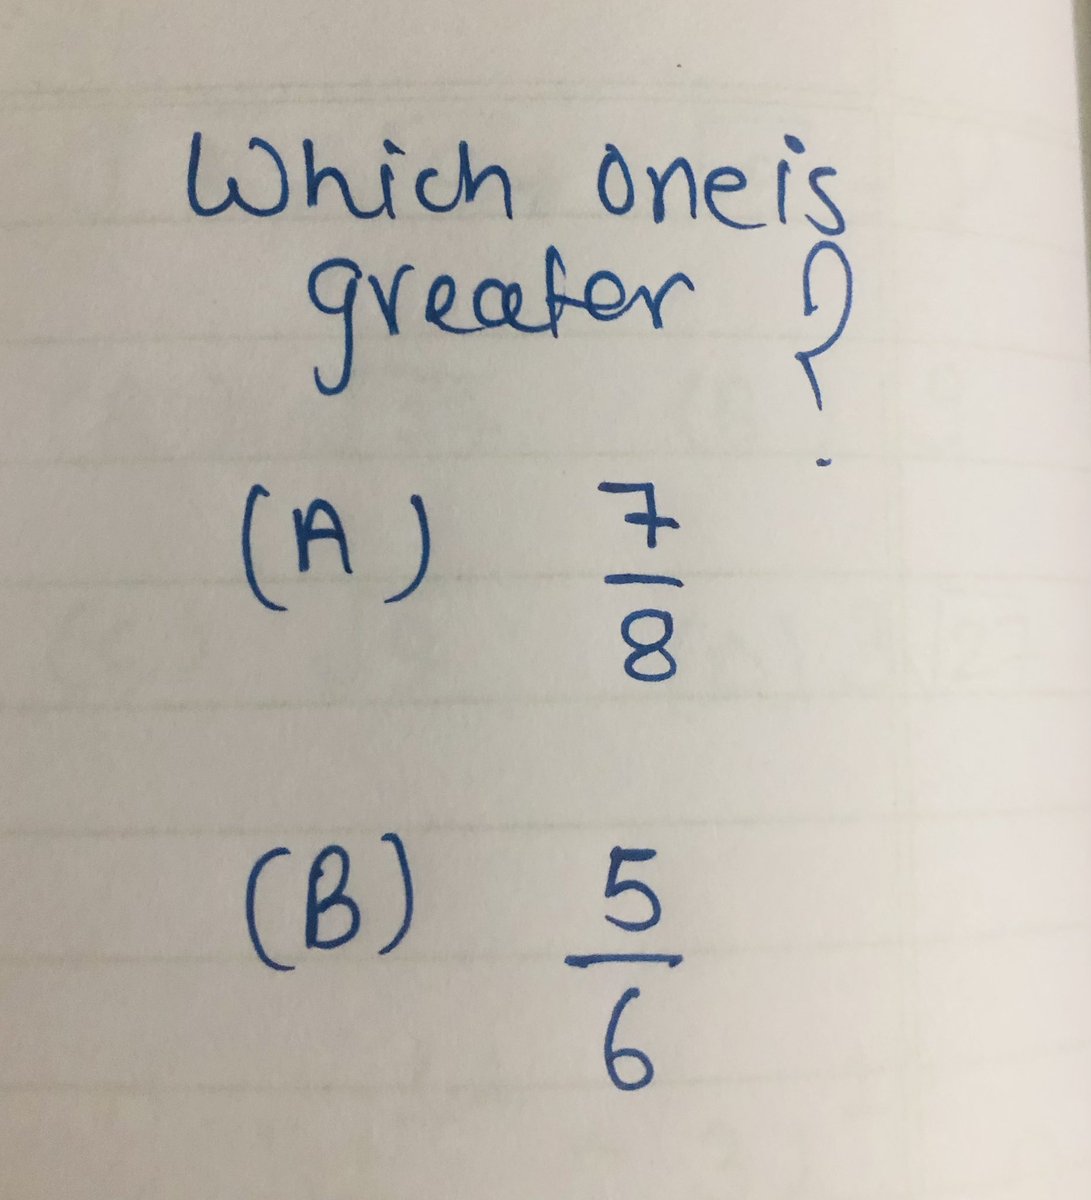 Which one is
greater ?
(A) 7/8
(B) 5/6